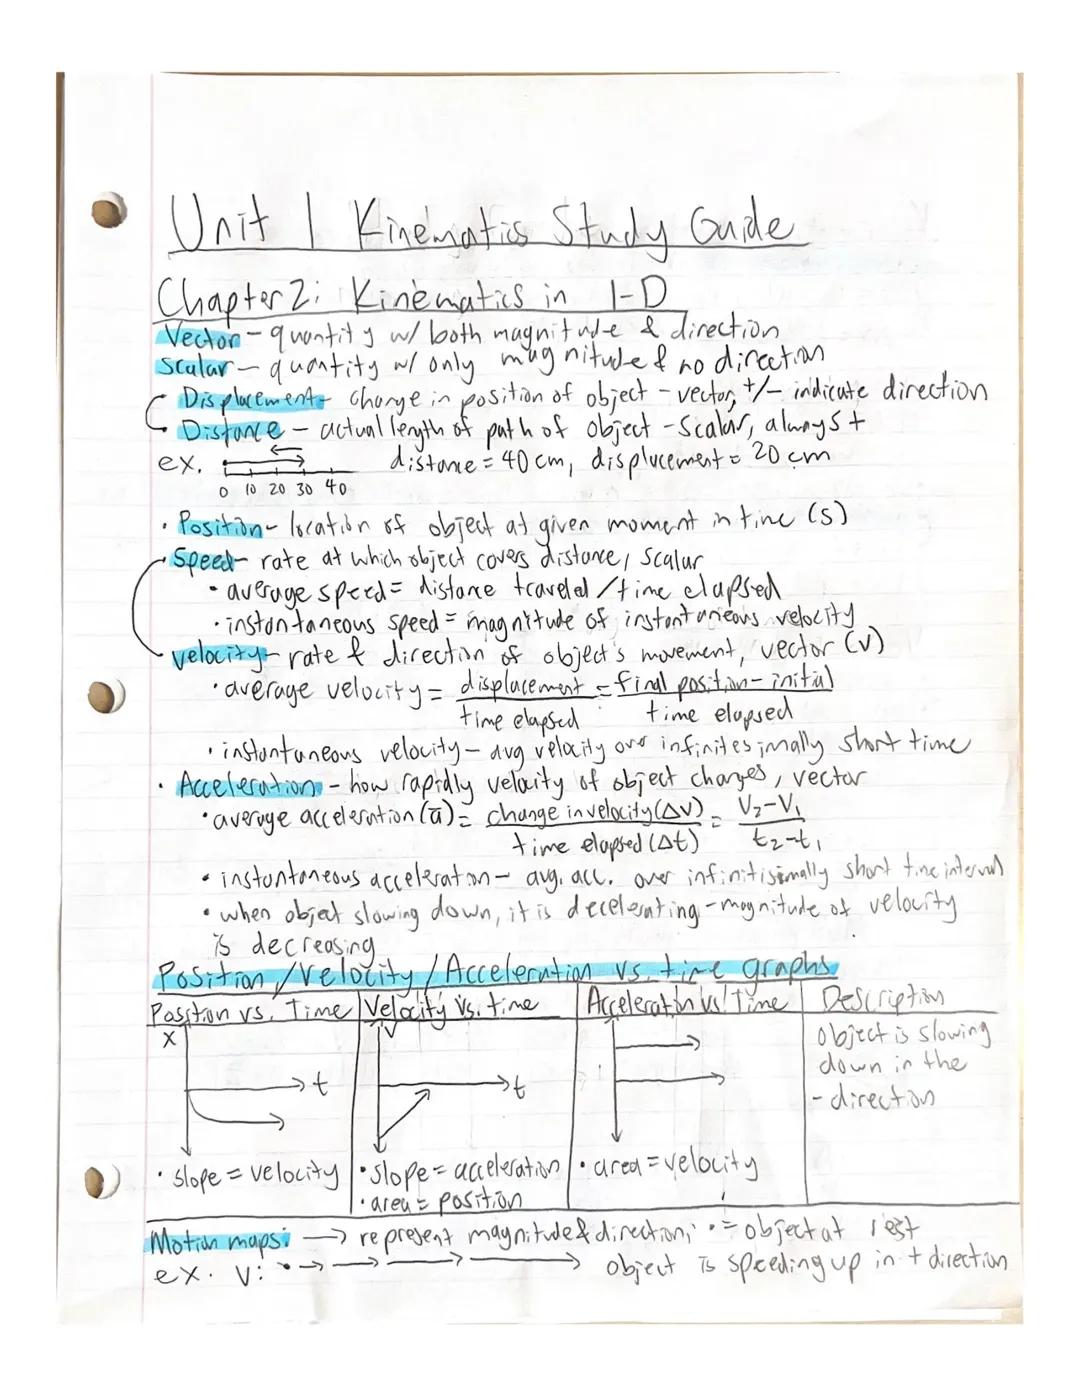 Unit 1 Kinematics Study Guide
Chapter 2: Kinematics in 1-D
Vector - quantity w/ both magnitude & direction
Scalar - quantity w/ only magnitude & no direction
Displacement - change in position of object - vector, +/- indicate direction
Distance - actual length of path of object - scalar, always +
ex. distance = 40 cm, displacement = 20 cm
0 10 20 30 40
• Position - location of object at given moment in time (s)
• Speed - rate at which object covers distance, scalar
• average speed = distance traveled / time elapsed
• instantaneous speed = magnitude of instantaneous velocity
• velocity - rate & direction of object's movement, vector (v)
• average velocity = displacement = final position - initial
time elapsed time elapsed
• instantaneous velocity - avg velocity over infinitesimally short time
• Acceleration - how rapidly velocity of object changes, vector
• average acceleration (a̅) = change in velocity (Δv) = V₂-V₁
time elapsed (Δt) t₂-t₁
• instantaneous acceleration - avg. acc. over infinitisimally short time interval
• when object slowing down, it is decelerating - magnitude of velocity
is decreasing
Position / Velocity / Acceleration vs. time graphs
Position vs. Time Velocity vs. time Acceleration vs. Time Description
x v object is slowing
down in the
t t - direction
• slope = velocity • slope = acceleration • area = velocity
• area = position
Motion maps: → represent magnitude & direction; • = object at rest
ex. v: • → → → → object is speeding up in + direction